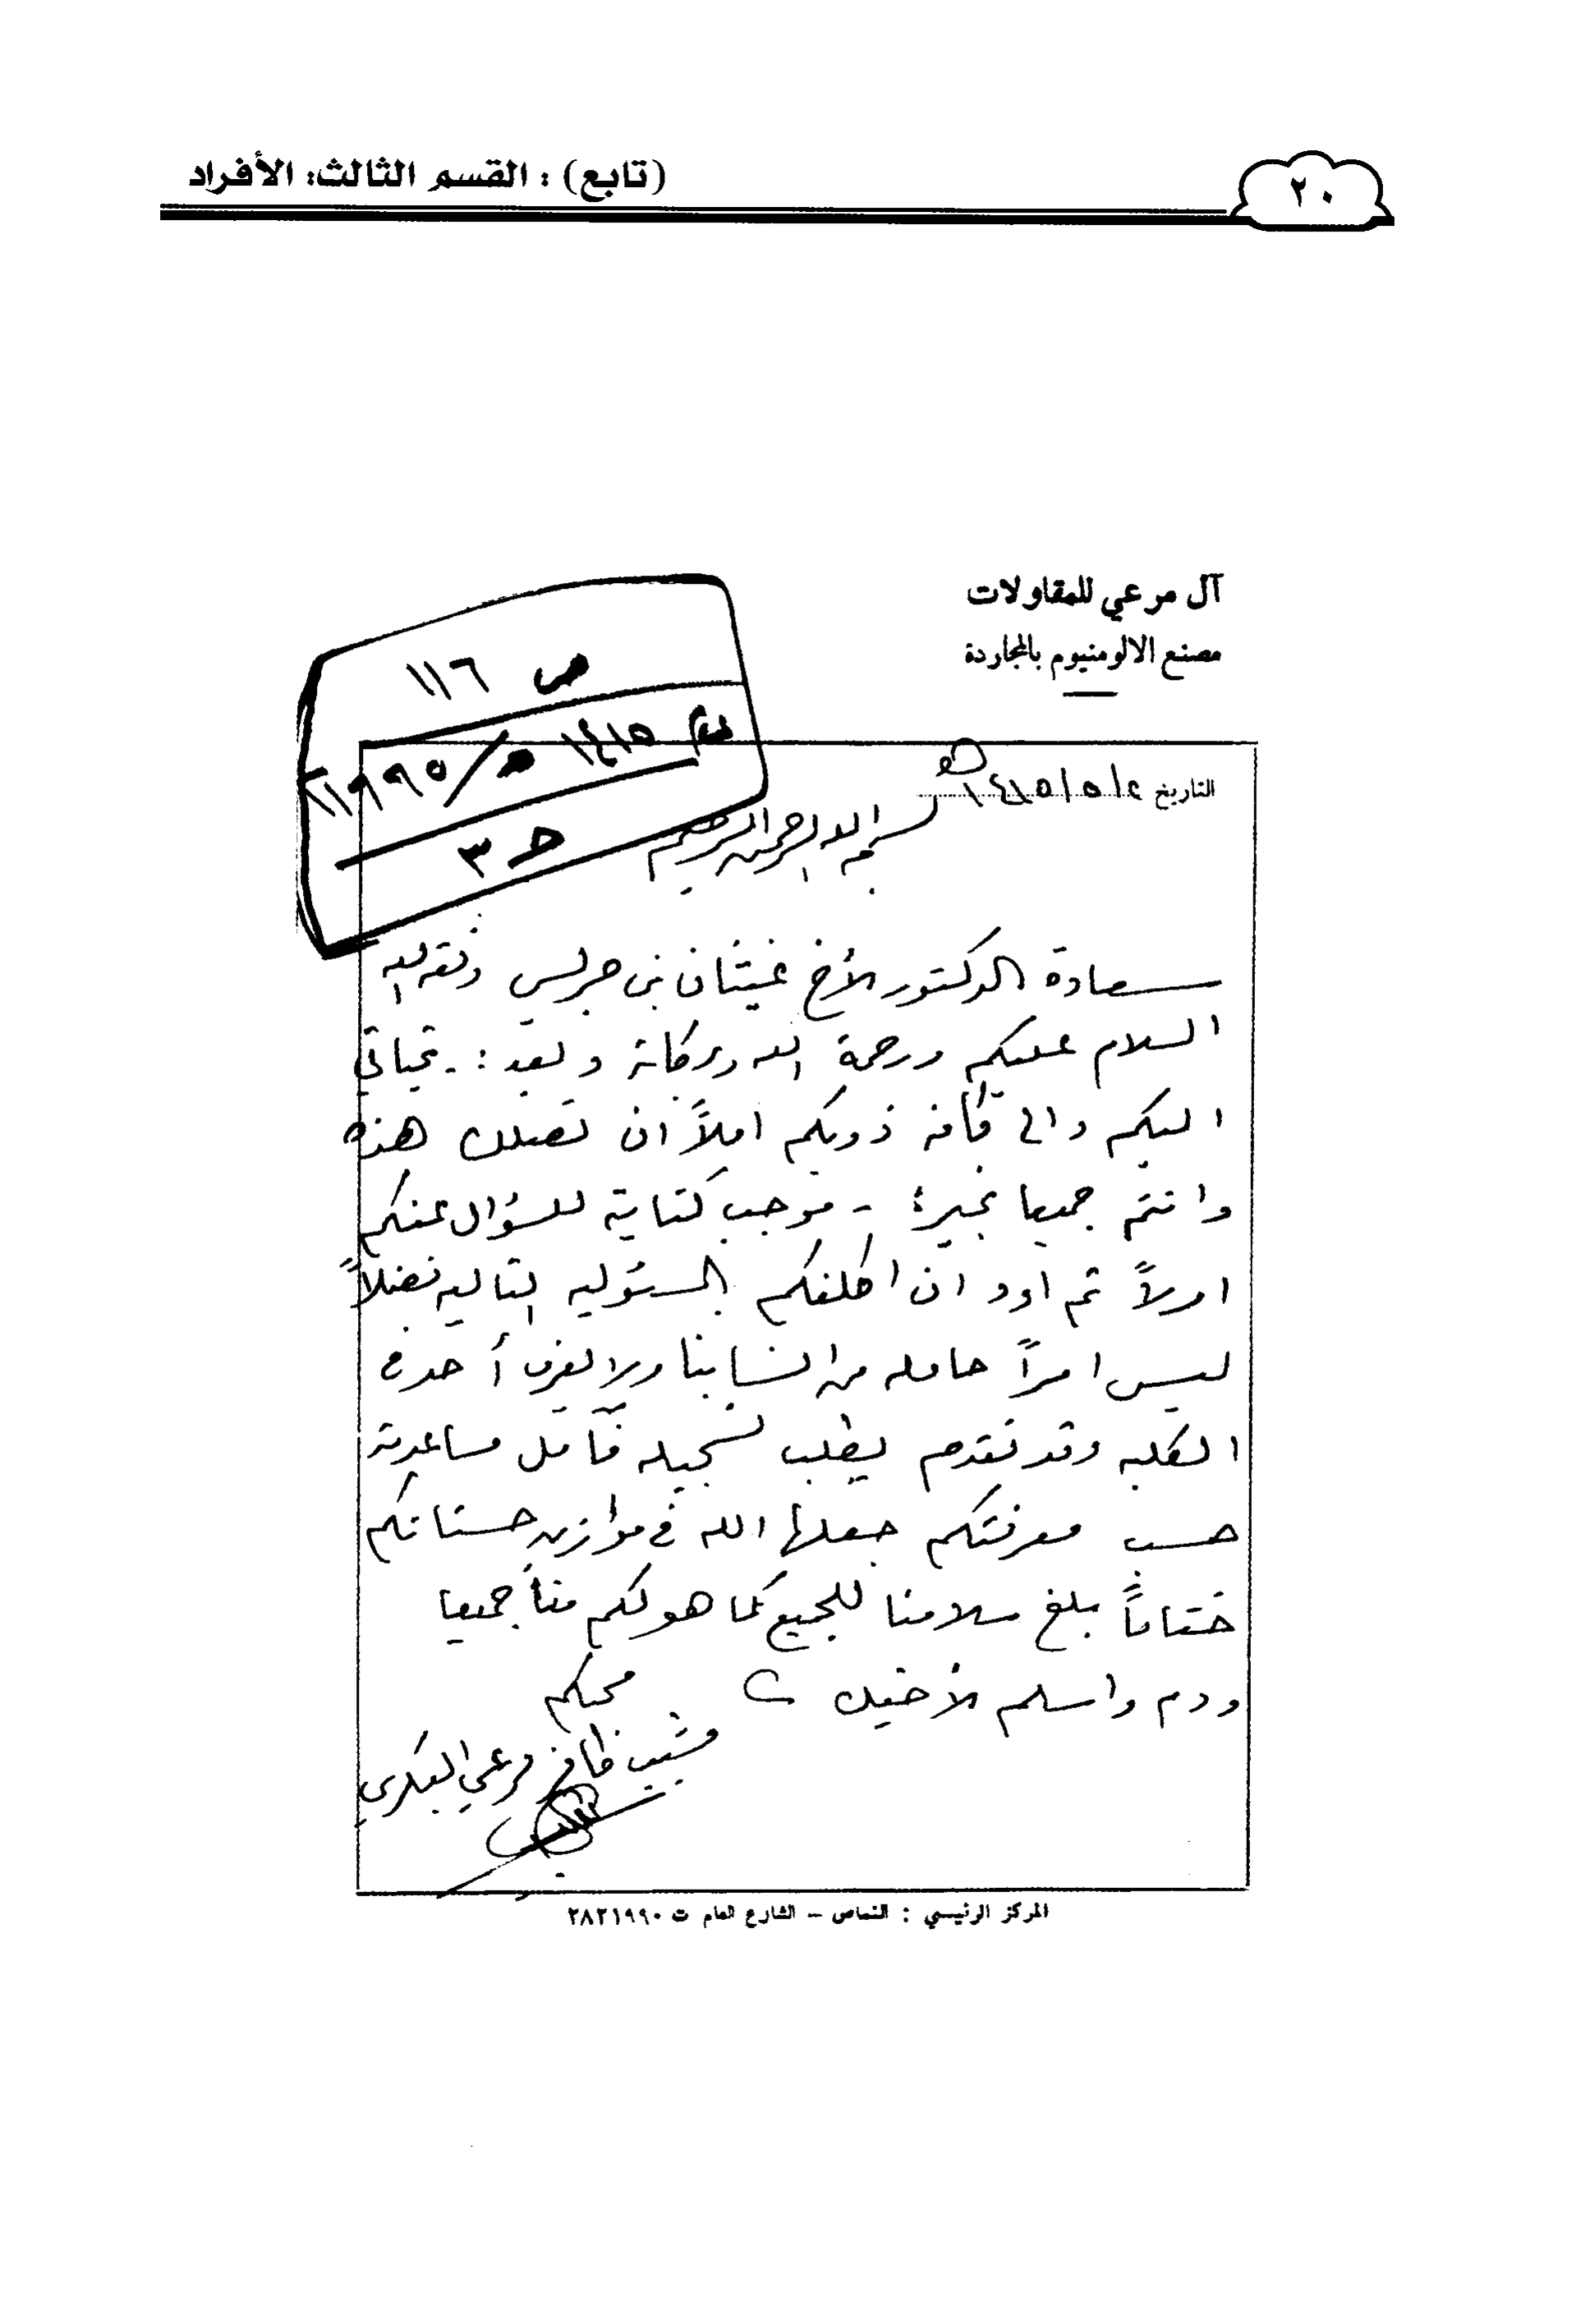 ٢٠
(تابع) : القسم الثالث: الأفراد
آل مرعي للمقاولات
مصنع الالومنيوم بالمجاردة
ص ١١٦
١٤١٥ هـ/ ١٩٩٥
ح ٣
التاريخ ٤/٥/١٤١٥هـ
بسم الله الرحمن الرحيم
سعادة الدكتور الأخ غيثان بن جريس وفقه الله
السلام عليكم ورحمة الله وبركاته وبعد :- تحياتي
اليكم والى كافة ذويكم املاً ان تصلك هذه
وانتم جميعا بخير؛ - موجب كتابة للسؤال عنكم
اولاً ثم اود ان اكلفكم بالمسئوليه التاليه تفضلاً
ليس امراً حامله من انسابنا ولا يعرف أحد في
الكليه وقد تقدم يطلب تسجيله فآمل مساعدته
حسب معرفتكم جعلها الله في موازين حسناتكم
ختاماً بلغ سلامنا للجميع كما هو لكم منا جميعا
ودم واسلم لأخيك
محبكم
مشبب ظافر مرعي البكري
المركز الرئيسي : النماص - الشارع العام ت ٢٨٢١٩٩٠